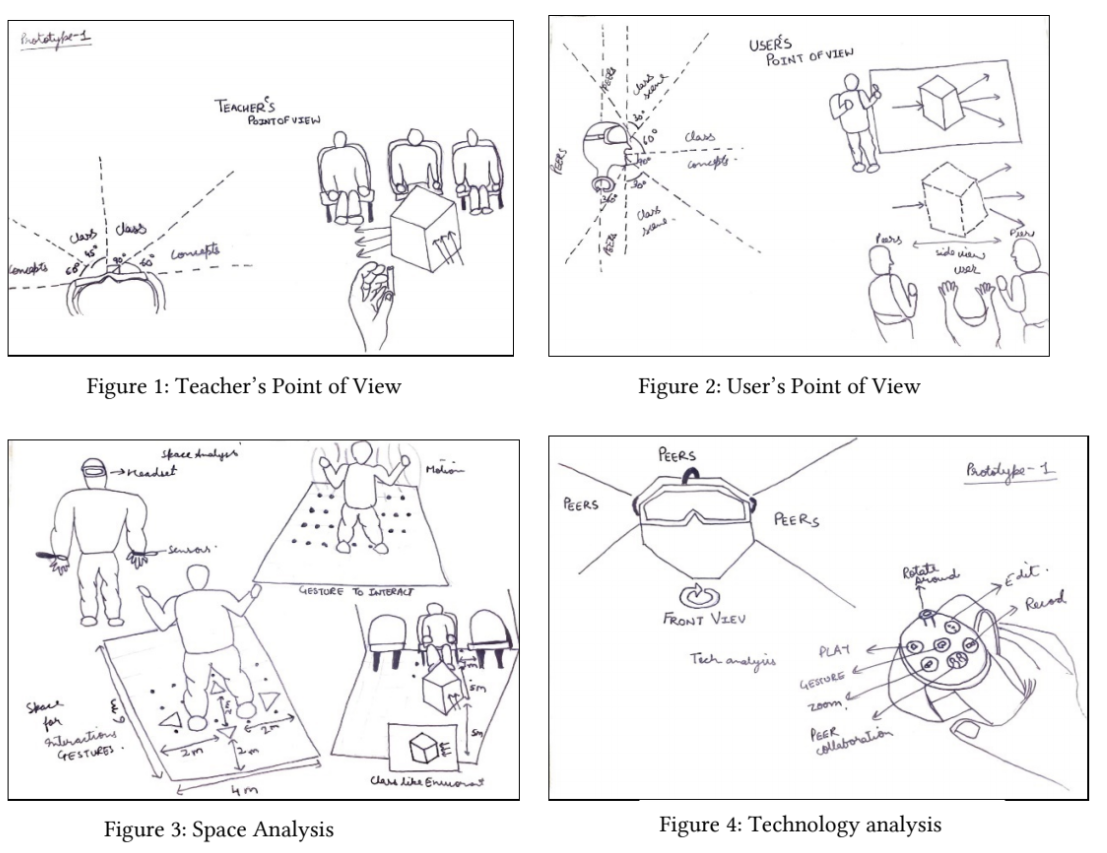 Prototype-1
TEACHER'S
POINT OF VIEW
Class
Class
Concepts
Concepts
60°
45°
90°
60°
Figure 1: Teacher's Point of View
USER'S
POINT OF VIEW
PEERS
Class
scene
30°
60°
Class
Concepts.
PEERS
90°
30°
Class
scene.
PEERS
Peers
side view
user
Peers
Figure 2: User's Point of View
Space Analysis
Headset
Sensors.
Motion
GESTURE TO INTERACT
Space
for
Interactions
GESTURES.
6m
2m
2m
2m
4m
5m
5m
Figure 3: Space Analysis
PEERS
PEERS
PEERS
Prototype-1
FRONT VIEW
Tech analysis
Rotate
around
Edit.
Record
PLAY
GESTURE
Zoom.
PEER
collaboration
Figure 4: Technology analysis